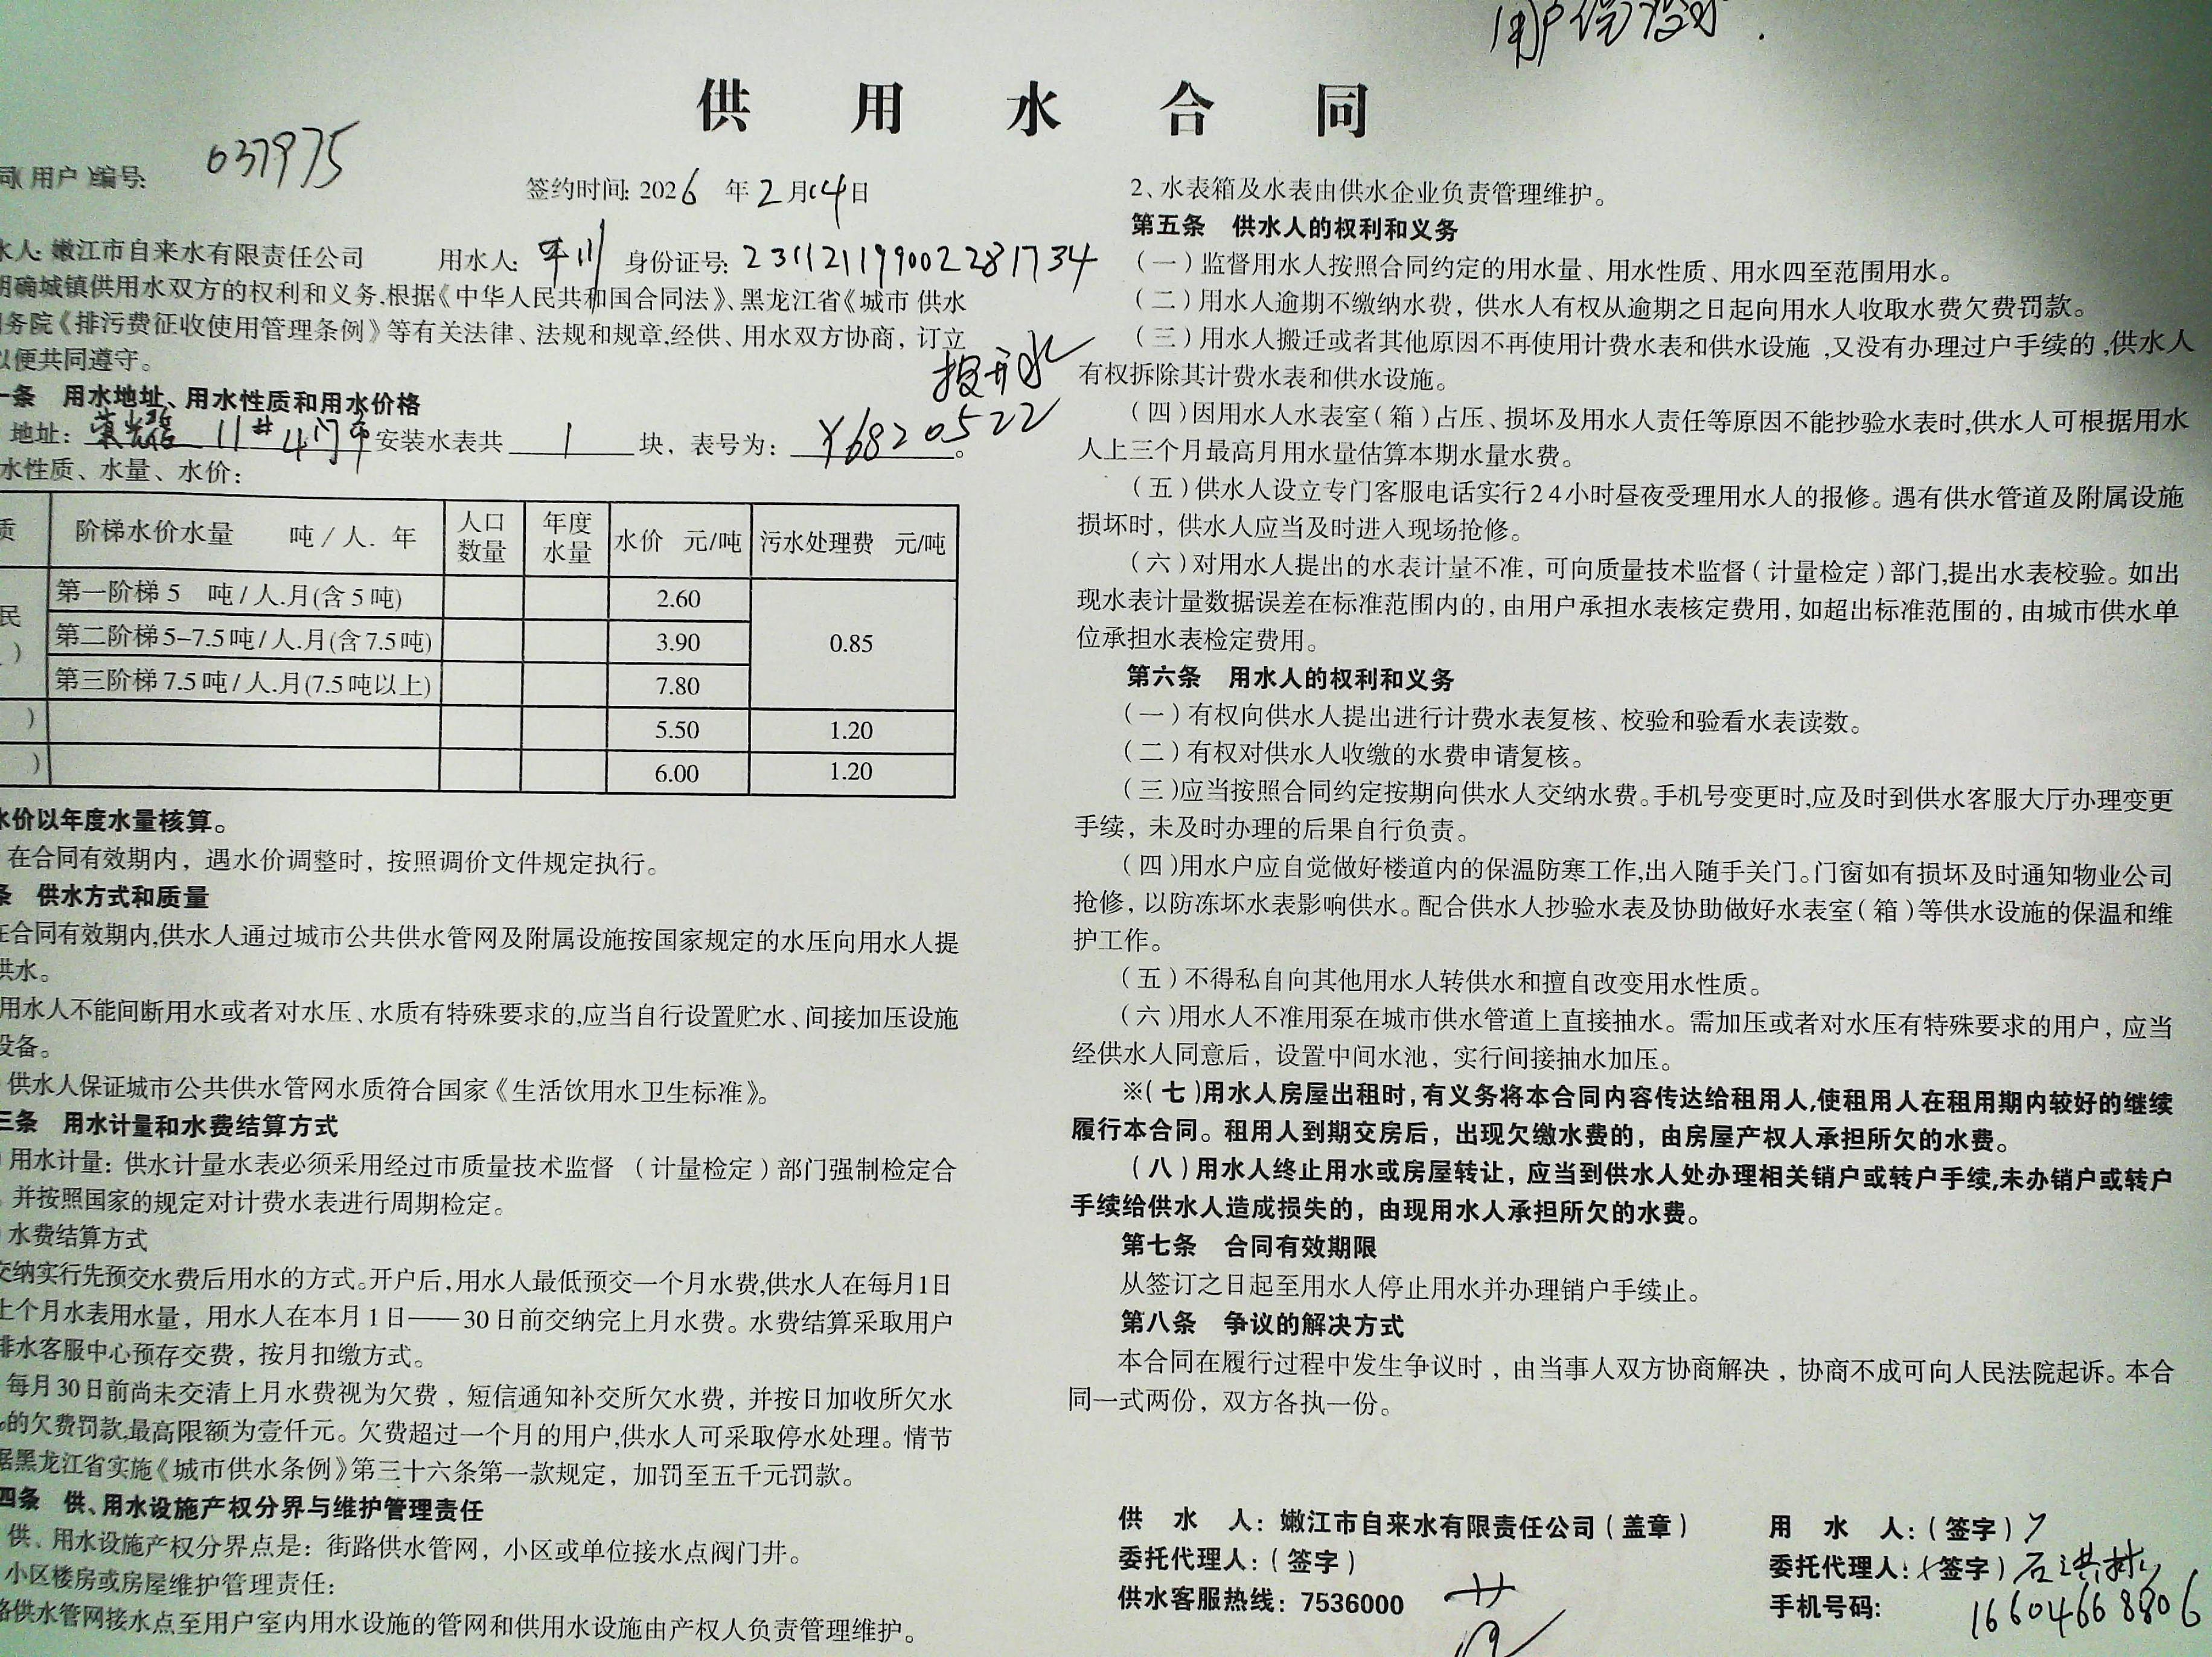 用户
供用水合同
同(用户)编号: 037975
签约时间: 2026 年 2 月 14 日
水人: 嫩江市自来水有限责任公司 用水人: 身份证号: 231121199002281734
明确城镇供用水双方的权利和义务.根据《中华人民共和国合同法》、黑龙江省《城市 供水
务院《排污费征收使用管理条例》等有关法律、法规和规章,经供、用水双方协商, 订立
以便共同遵守。
一条 用水地址、用水性质和用水价格
地址: 11# 4门 安装水表共 1 块, 表号为: Y6820522。
水性质、水量、水价:
质 阶梯水价水量 吨/人.年 人口数量 年度水量 水价 元/吨 污水处理费 元/吨
民 第一阶梯 5 吨/人.月(含 5 吨) 2.60
第二阶梯 5-7.5 吨/人.月(含 7.5 吨) 3.90 0.85
) 第三阶梯 7.5 吨/人.月(7.5 吨以上) 7.80
) 5.50 1.20
) 6.00 1.20
水价以年度水量核算。
在合同有效期内, 遇水价调整时, 按照调价文件规定执行。
条 供水方式和质量
在合同有效期内,供水人通过城市公共供水管网及附属设施按国家规定的水压向用水人提
供水。
用水人不能间断用水或者对水压、水质有特殊要求的,应当自行设置贮水、间接加压设施
设备。
供水人保证城市公共供水管网水质符合国家《生活饮用水卫生标准》。
三条 用水计量和水费结算方式
用水计量: 供水计量水表必须采用经过市质量技术监督 (计量检定)部门强制检定合
并按照国家的规定对计费水表进行周期检定。
水费结算方式
交纳实行先预交水费后用水的方式。开户后,用水人最低预交一个月水费,供水人在每月1日
上个月水表用水量, 用水人在本月 1 日——30 日前交纳完上月水费。水费结算采取用户
排水客服中心预存交费, 按月扣缴方式。
每月 30 日前尚未交清上月水费视为欠费, 短信通知补交所欠水费, 并按日加收所欠水
的欠费罚款,最高限额为壹仟元。欠费超过一个月的用户,供水人可采取停水处理。情节
据黑龙江省实施《城市供水条例》第三十六条第一款规定, 加罚至五千元罚款。
四条 供、用水设施产权分界与维护管理责任
供、用水设施产权分界点是: 街路供水管网, 小区或单位接水点阀门井。
小区楼房或房屋维护管理责任:
路供水管网接水点至用户室内用水设施的管网和供用水设施由产权人负责管理维护。
2、水表箱及水表由供水企业负责管理维护。
第五条 供水人的权利和义务
(一)监督用水人按照合同约定的用水量、用水性质、用水四至范围用水。
(二)用水人逾期不缴纳水费, 供水人有权从逾期之日起向用水人收取水费欠费罚款。
(三)用水人搬迁或者其他原因不再使用计费水表和供水设施,又没有办理过户手续的,供水人
有权拆除其计费水表和供水设施。
(四)因用水人水表室(箱)占压、损坏及用水人责任等原因不能抄验水表时,供水人可根据用水
人上三个月最高月用水量估算本期水量水费。
(五)供水人设立专门客服电话实行24小时昼夜受理用水人的报修。遇有供水管道及附属设施
损坏时, 供水人应当及时进入现场抢修。
(六)对用水人提出的水表计量不准, 可向质量技术监督(计量检定)部门,提出水表校验。如出
现水表计量数据误差在标准范围内的, 由用户承担水表核定费用, 如超出标准范围的, 由城市供水单
位承担水表检定费用。
第六条 用水人的权利和义务
(一)有权向供水人提出进行计费水表复核、校验和验看水表读数。
(二)有权对供水人收缴的水费申请复核。
(三)应当按照合同约定按期向供水人交纳水费。手机号变更时,应及时到供水客服大厅办理变更
手续, 未及时办理的后果自行负责。
(四)用水户应自觉做好楼道内的保温防寒工作,出入随手关门。门窗如有损坏及时通知物业公司
抢修, 以防冻坏水表影响供水。配合供水人抄验水表及协助做好水表室(箱)等供水设施的保温和维
护工作。
(五)不得私自向其他用水人转供水和擅自改变用水性质。
(六)用水人不准用泵在城市供水管道上直接抽水。需加压或者对水压有特殊要求的用户, 应当
经供水人同意后, 设置中间水池, 实行间接抽水加压。
※(七)用水人房屋出租时,有义务将本合同内容传达给租用人,使租用人在租用期内较好的继续
履行本合同。租用人到期交房后, 出现欠缴水费的, 由房屋产权人承担所欠的水费。
(八)用水人终止用水或房屋转让, 应当到供水人处办理相关销户或转户手续,未办销户或转户
手续给供水人造成损失的, 由现用水人承担所欠的水费。
第七条 合同有效期限
从签订之日起至用水人停止用水并办理销户手续止。
第八条 争议的解决方式
本合同在履行过程中发生争议时, 由当事人双方协商解决, 协商不成可向人民法院起诉。本合
同一式两份, 双方各执一份。
供 水 人: 嫩江市自来水有限责任公司(盖章)
委托代理人:(签字)
供水客服热线: 7536000
用 水 人:(签字)
委托代理人:(签字) 石洪彬
手机号码: 16604668806